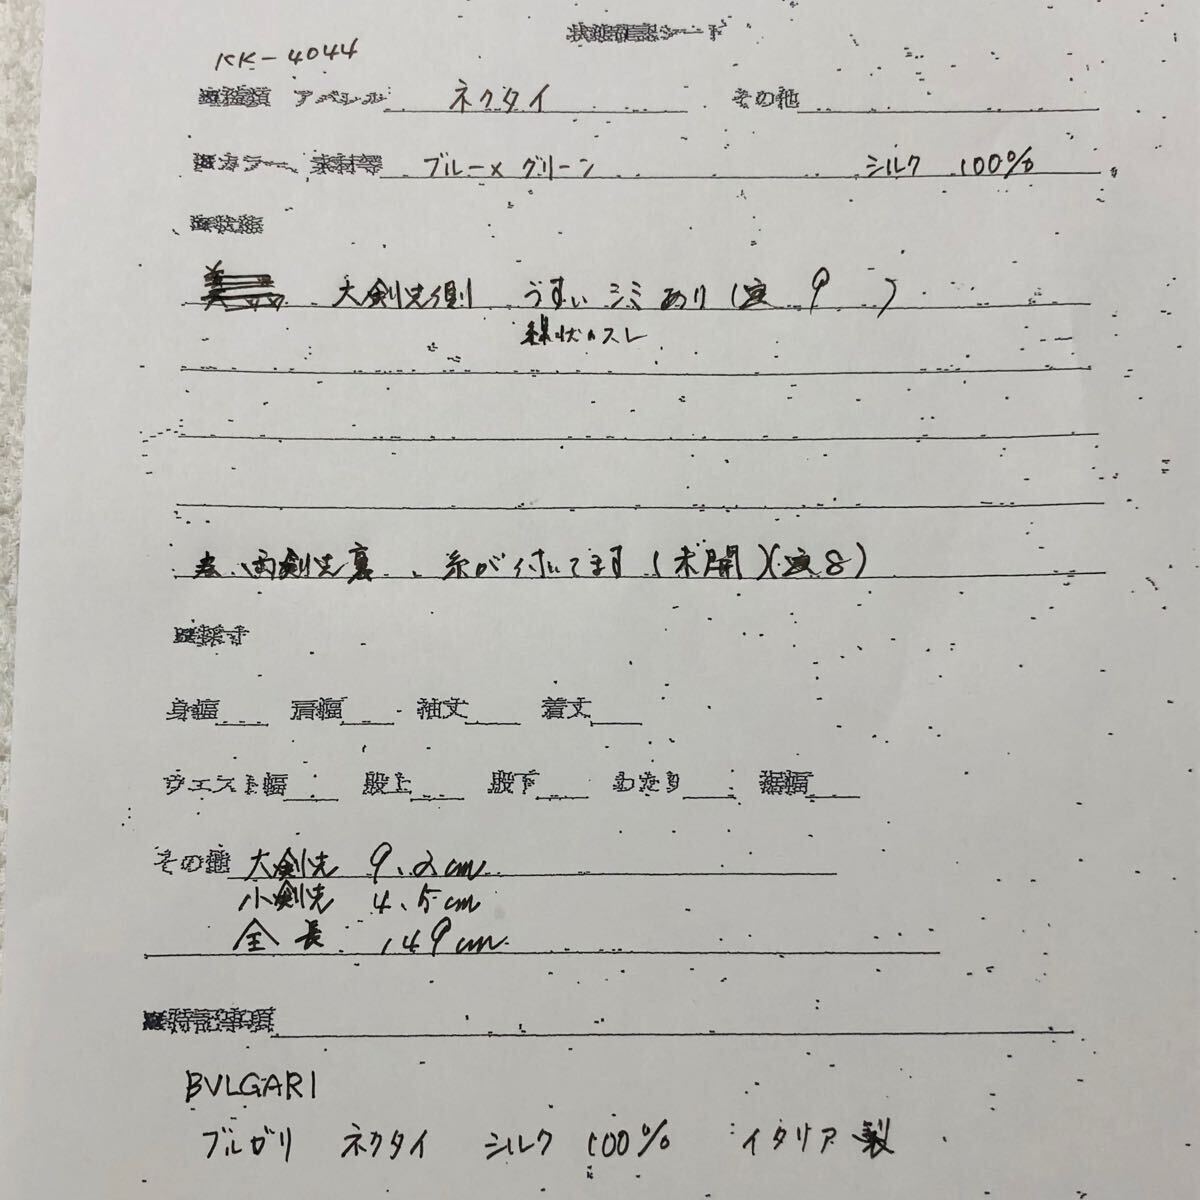 状態確認シード
KK-4044
種類 アパレル ネクタイ その他
カラー、素材等 ブルー×グリーン シルク 100%
状態
大剣先側 うすいシミあり(写 9 )
線状のスレ
両剣先裏、糸が付いてます(未開)(写8)
採寸
身幅 肩幅 袖丈 着丈
ウエスト幅 股上 股下 わたり 裾幅
その他 大剣先 9.2cm
小剣先 4.5cm
全長 149cm
特記事項
BVLGARI
ブルガリ ネクタイ シルク 100% イタリア製